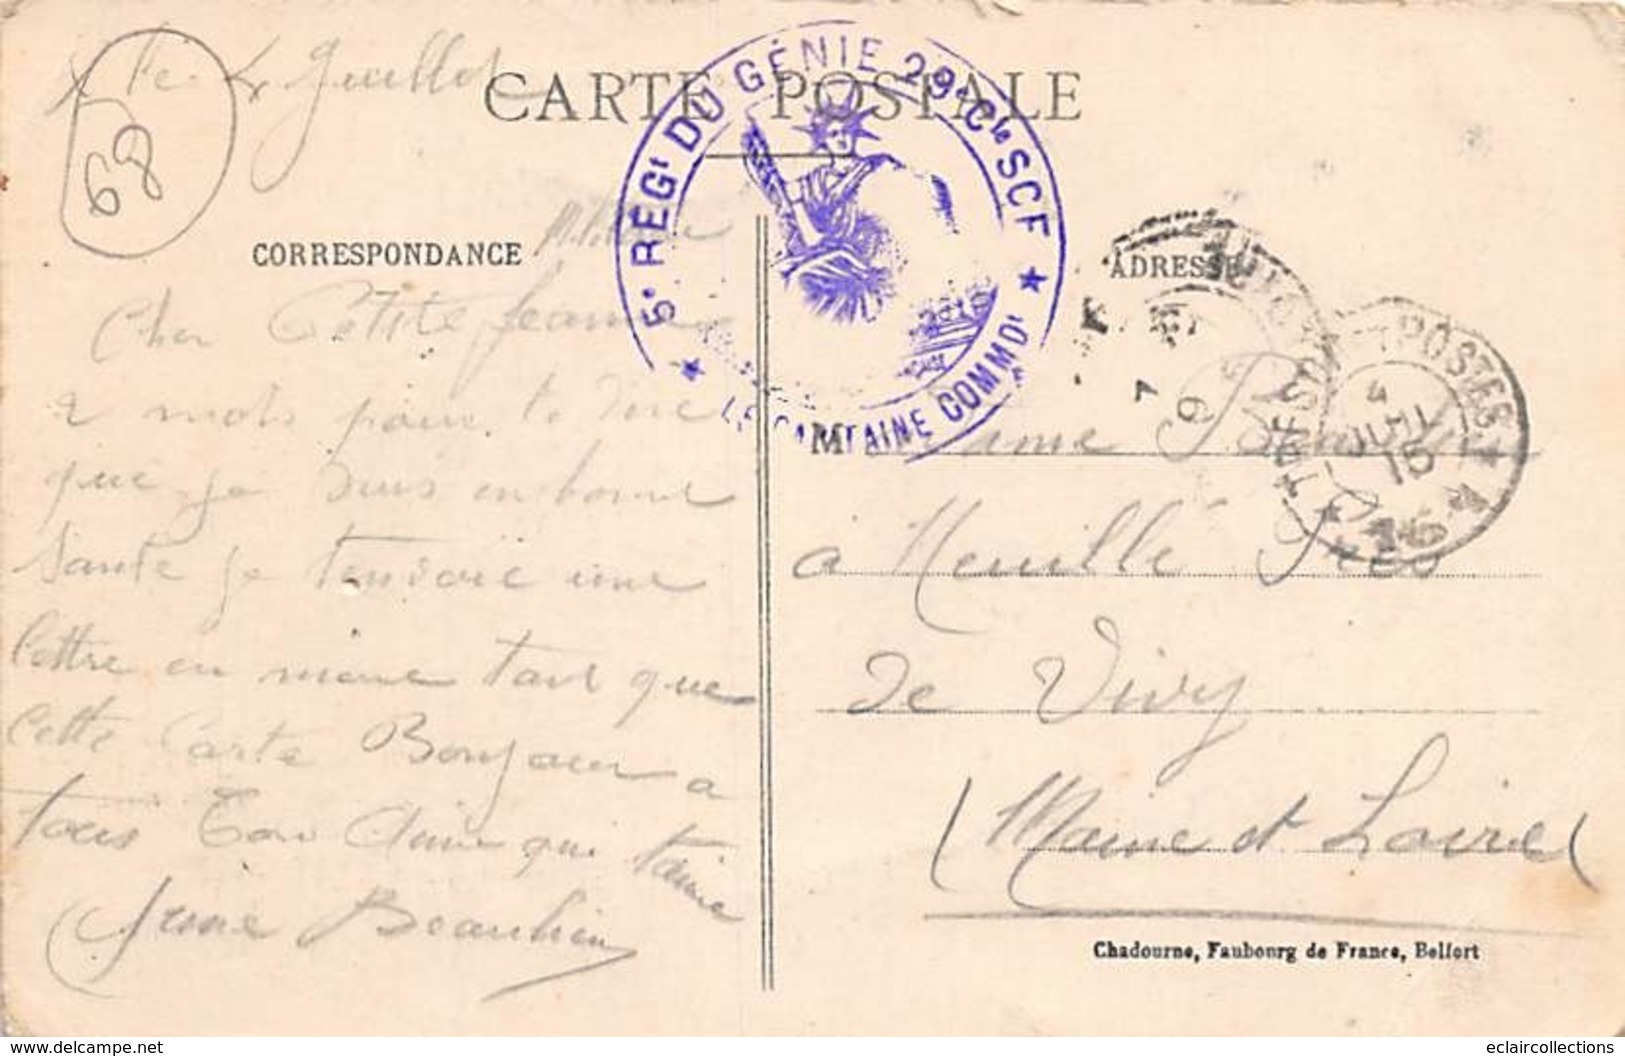 CARTE POSTALE
68
5e RÉGt DU GÉNIE 29e Cie SCF
LE CAPITAINE COMMDt
CORRESPONDANCE
ADRESSE
Cher Petite Jeanne
2 mots pour te dire
que je suis en bonne
santé je tenvoie une
lettre en meme tant que
cette Carte Bonjour a
tous Ton qui taime
Beaulieu
TRESOR ET POSTES
4
JUIL
15
M ame Beaulieu
a Neuillé Près
de Vivy
(Maine et Loire)
Chadourne, Faubourg de France, Belfort
www.delcampe.net
eclaircollections